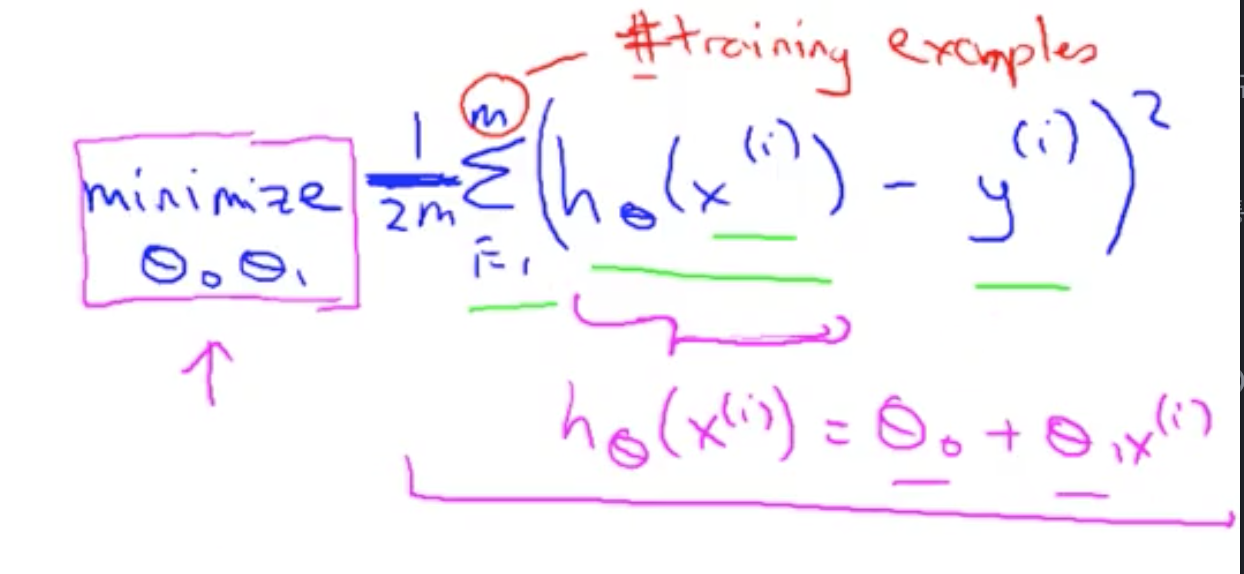 #training examples
minimize θ₀ θ₁ 1/2m Σ_{i=1}^{m} (h_θ(x^{(i)}) - y^{(i)})²
h_θ(x^{(i)}) = θ₀ + θ₁x^{(i)}